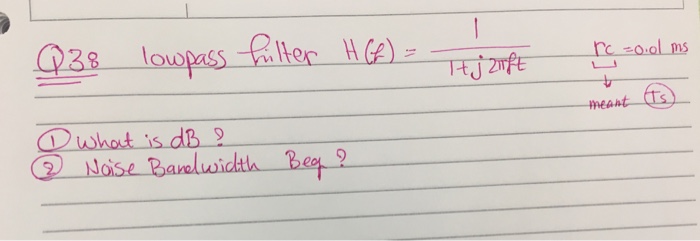 Q38 lowpass filter H(f) = 1 / 1+j2πft rc = 0.01 ms
meant Ts
① what is dB ?
② Noise Bandwidth Beq ?